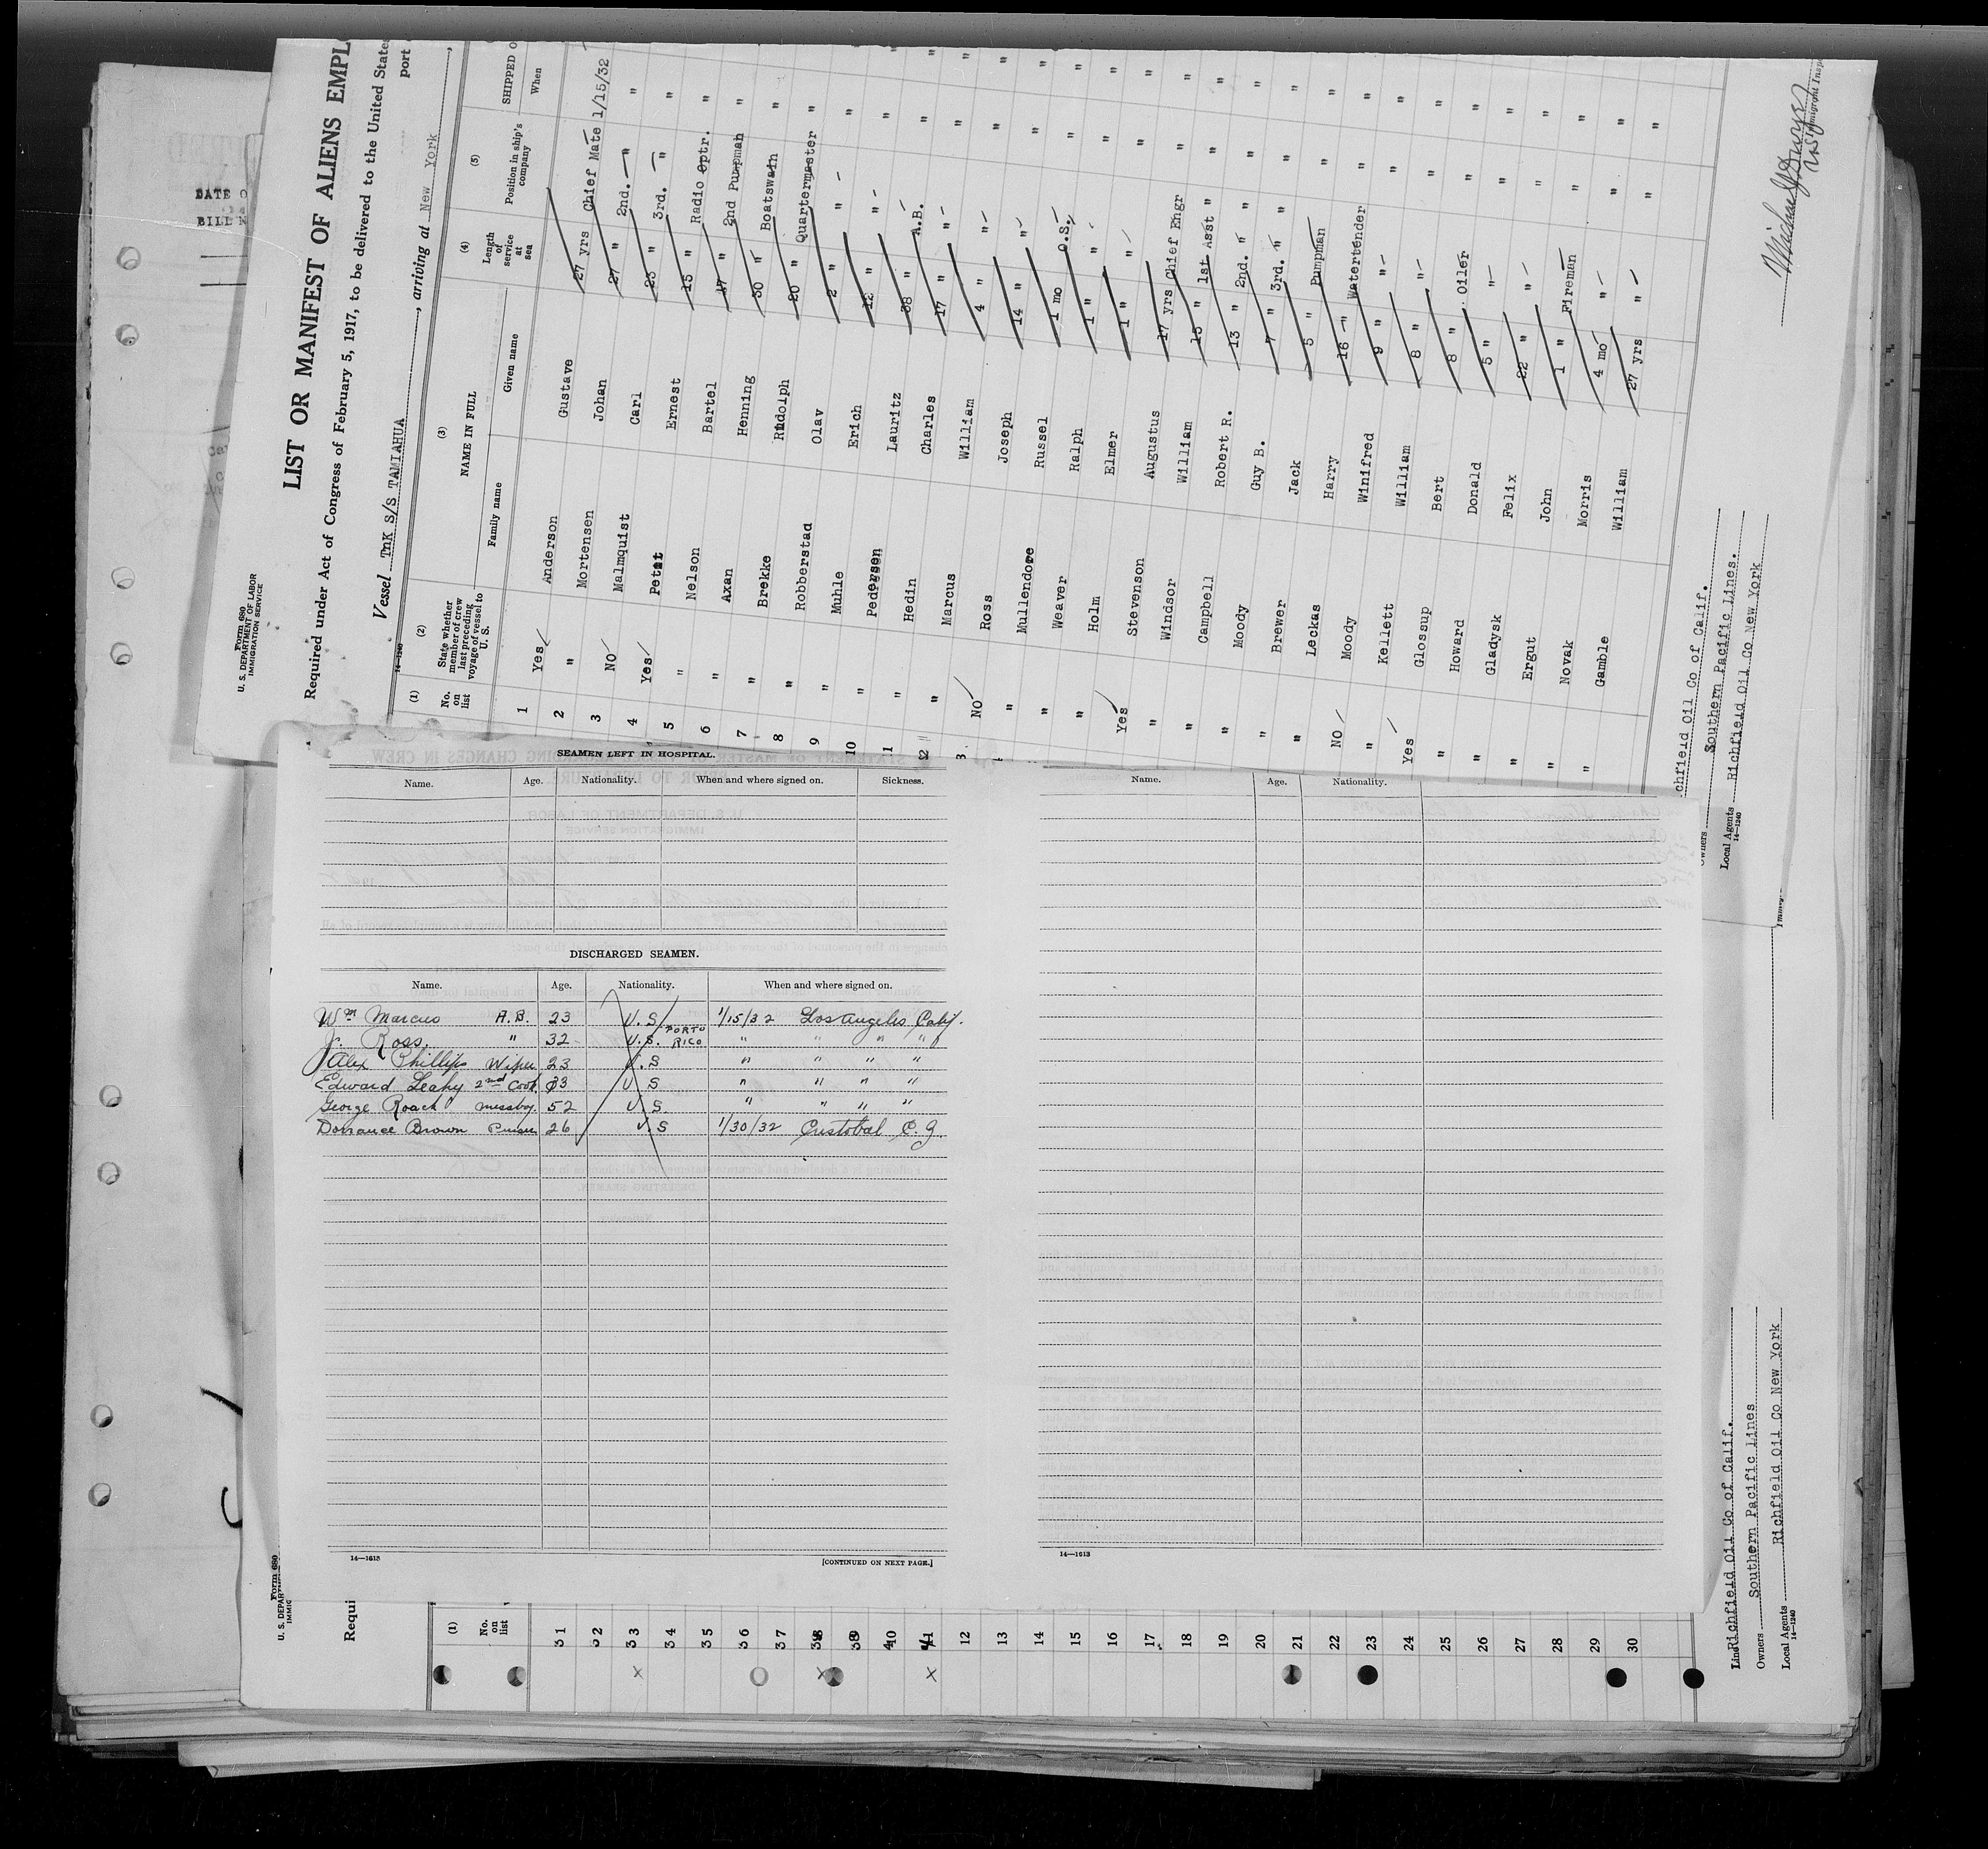 DATE O
BILL N
Form 680
U. S. DEPARTMENT OF LABOR
IMMIGRATION SERVICE
LIST OR MANIFEST OF ALIENS EMPL
Required under Act of Congress of February 5, 1917, to be delivered to the United States
port
Vessel TnK S/S TAMIAHUA, arriving at New York,
14-1240
(1) (2) (3) (4) (5)
No. on list
State whether member of crew last preceding voyage of vessel to U. S.
NAME IN FULL
Family name Given name
Length of service at sea
Position in ship's company
SHIPPED O
When
1 Yes Anderson Gustave 27 yrs Chief Mate 1/15/32
2 " Mortensen Johan 27 " 2nd. " "
3 NO Malmquist Carl 23 " 3rd. " "
4 Yes Petit Ernest 15 " Radio optr. "
5 " Nelson Bartel 17 " 2nd Pumpman "
6 " Axan Henning 30 " Boatswain "
7 " Brekke Rudolph 20 " Quartermaster "
8 " Robberstad Olav 2 " " "
9 " Muhle Erich 12 " " "
10 " Pedersen Lauritz 38 " A.B. "
11 " Hedin Charles 17 " " "
12 " Marcus William 4 " " "
NO Ross Joseph 14 " " "
" Mullendore Russel 1 mo O.S. "
" Weaver Ralph 1 " " "
" Holm Elmer 1 " " "
Yes Stevenson Augustus 17 yrs Chief Engr "
" Windsor William 15 " 1st Asst " "
" Campbell Robert R. 13 " 2nd. " "
" Moody Guy B. 7 " 3rd. " "
" Brewer Jack 5 " Pumpman "
" Leckas Harry 16 " Watertender "
NO Moody Winifred 9 " " "
" Kellett William 8 " " "
Yes Glossup Bert 8 " Oiler "
" Howard Donald 5 " " "
" Gladysk Felix 22 " " "
" Ergut John 1 " Fireman "
" Novak Morris 4 mo " "
" Gamble William 27 yrs " "
chfield Oil Co of Calif.
Owners Southern Pacific Lines.
Local Agents Richfield Oil Co New York
14-1240
SEAMEN LEFT IN HOSPITAL.
Name. Age. Nationality. When and where signed on. Sickness.
Name. Age. Nationality.
DISCHARGED SEAMEN.
Name. Age. Nationality. When and where signed on.
Wm Marcus A.B. 23 U.S 1/15/32 Los Angeles Calif.
J. Ross. " 32 U.S. PORTO RICO " " " "
Alex Phillips Wiper 23 U.S " " " "
Edward Leahy 2nd Cook 33 U S " " " "
George Roach messboy. 52 U.S. " " " "
Dorrance Brown 26 U.S 1/30/32 Cristobal C. Z.
14—1613
[CONTINUED ON NEXT PAGE.]
14—1613
Form 680
U. S. DEPAR
IMMIG
Requi
(1)
No. on list
31
32
33
34
35
36
37
38
39
40
41
12
13
14
15
16
17
18
19
20
21
22
23
24
25
26
27
28
29
30
Line Richfield Oil Co of Calif.
Owners Southern Pacific Lines
Local Agents Richfield Oil Co New York
14-1240